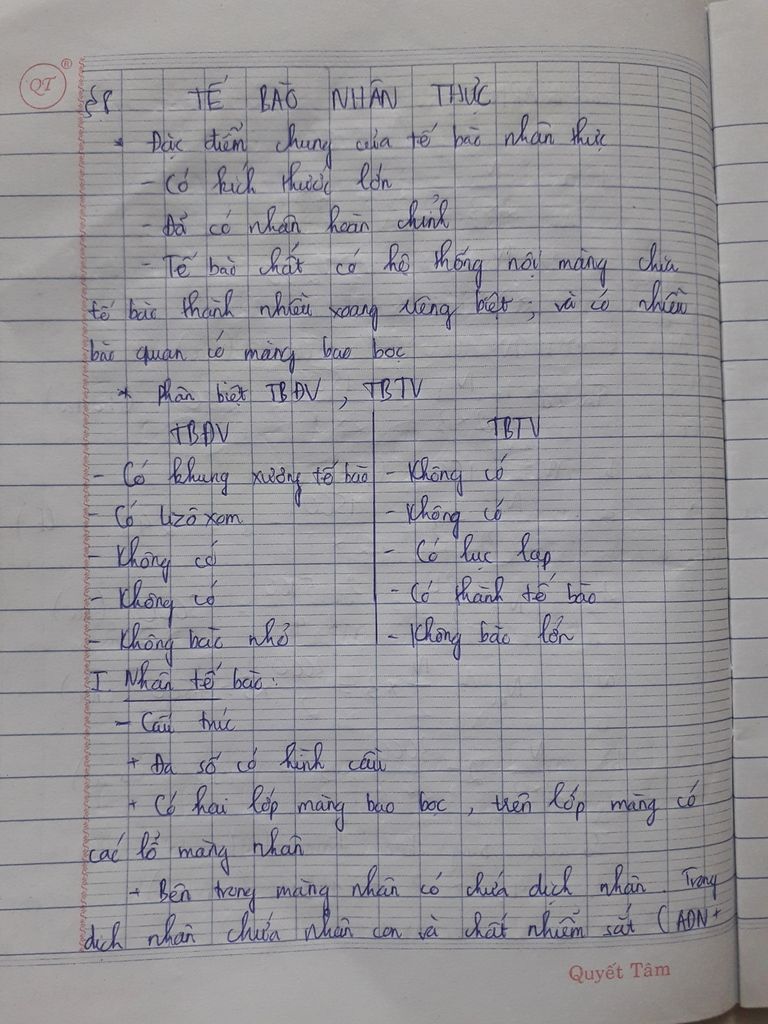 QT ®
§8 TẾ BÀO NHÂN THỰC
* Đặc điểm chung của tế bào nhân thực
- Có kích thước lớn
- Đã có nhân hoàn chỉnh
- Tế bào chất có hệ thống nội màng chia
tế bào thành nhiều xoang riêng biệt; và có nhiều
bào quan có màng bao bọc
* Phân biệt TBĐV, TBTV
TBĐV TBTV
- Có khung xương tế bào - Không có
- Có lizôxom - Không có
- Không có - Có lục lạp
- Không có - Có thành tế bào
- Không bào nhỏ - Không bào lớn
I. Nhân tế bào:
- Cấu trúc
+ Đa số có hình cầu
+ Có hai lớp màng bao bọc, trên lớp màng có
các lổ màng nhân
+ Bên trong màng nhân có chứa dịch nhân. Trong
dịch nhân chứa nhân con và chất nhiễm sắt (ADN +
Quyết Tâm